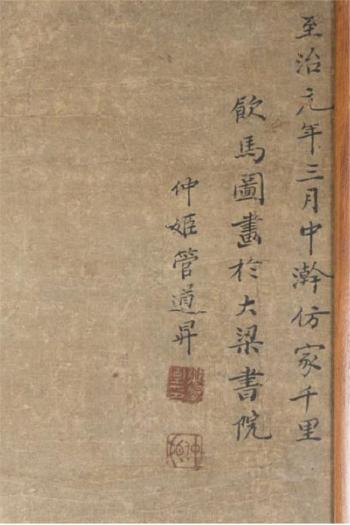 至治元年三月中澣仿家千里
飲馬圖畫於大梁書院
仲姬管道昇